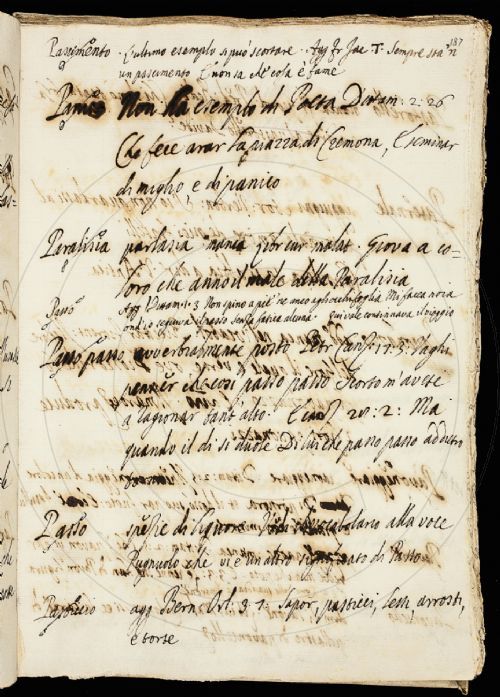 187
Pascimento L'ultimo esemplo si può scortare. Agg. Fr. Jac. T. Sempre sta 'n
un pascimento E non sa che cosa è fame
Panico Non ha esemplo di Poeta Dram: 2: 26
Che fece arar la piazza di Cremona, E seminar
di miglio e di panico
Paralisia parlasia manca Giova a co-
loro che anno il male della Paralisia
Passo Agg. 3 Non pino a piè ne anco agli occhi foglia Mi facea noia
ond'io seguiva il passo senza fatica alcuna quivale continuava il viaggio
Passo passo avverbialmente posto Petr. Canz. 17. 3. Vaghi
pensier che così passo passo Scorto m'avete
a ragionar tant'alto. E canz. 20: 2: Ma
quando il dì si duole Di lui che passo passo addietro
Passo spezie di vocabolario alla voce
Pugnuolo che vi è un altro di Passo
Pasticcio agg. Bern. Orl. 3. 7. Sapor, pasticci, lessi, arrosti,
e torte